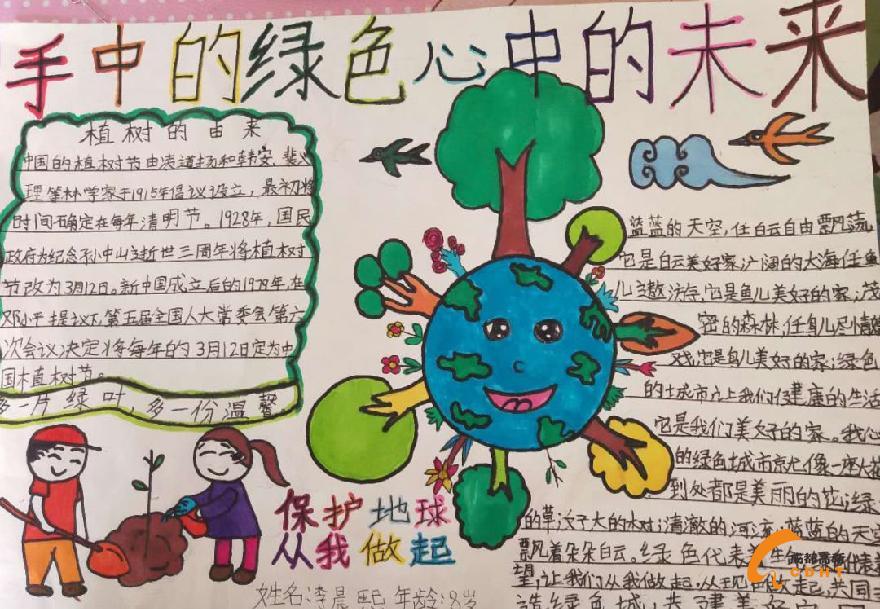 手中的绿色心中的未来
植树的由来
中国的植树节由凌道扬和韩安、裴义
理等林学家于1915年倡议设立，最初将
时间确定在每年清明节。1928年，国民
政府为纪念孙中山逝世三周年将植树
节改为3月12日。新中国成立后的1979年,在
邓小平提议下,第五届全国人大常委会第六
次会议决定将每年的3月12日定为中
国植树节。
多一片绿叶,多一份温馨
蓝蓝的天空,任白云自由飘荡
它是白云美好家,广阔的大海任鱼
儿遨游,它是鱼儿美好的家,茂
密的森林,任鸟儿尽情嬉
戏它是鸟儿美好的家;绿色
的城市六上我们健康的生活
它是我们美好的家。我心
的绿色城市就像一座大花
到处都是美丽的花绿
的草,大的树,清澈的河流,蓝蓝的天空
飘着朵朵白云。绿色代表
望,让我们从我做起,从现 起,共同
造绿色城,共建美好
保护地球
从我做起
姓名:李晨熙 年龄:8岁
CDHT